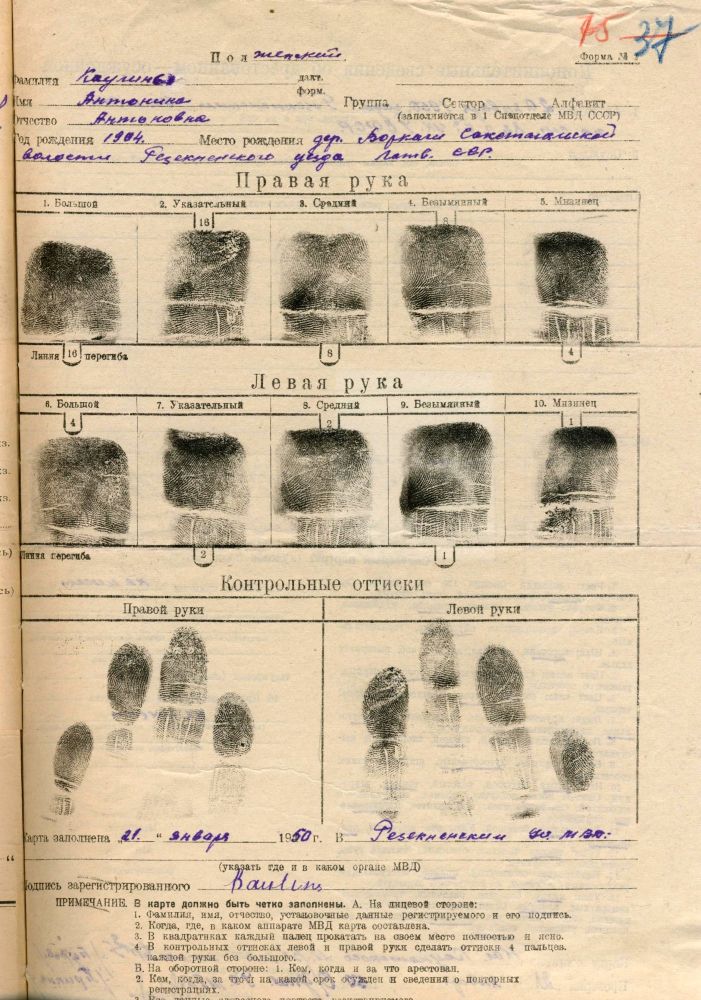 15 37
Пол женский.
Форма №
Фамилия дакт.
форм.
Имя Антонина Группа Сектор Алфавит
Отчество Антоновна (заполняется в 1 Спецотделе МВД СССР)
Год рождения 1904. Место рождения дер. Воркали
волости Резекненского уезда Латв. ССР.
Правая рука
1. Большой 2. Указательный 3. Средний 4. Безымянный 5. Мизинец
16 8
Линия 16 перегиба 8 4
Левая рука
6. Большой 7. Указательный 8. Средний 9. Безымянный 10. Мизинец
4 2 1
Линия перегиба 2 1
Контрольные оттиски
Правой руки Левой руки
Карта заполнена „21. “ января 1950 г. В Резекненским
(указать где и в каком органе МВД)
подпись зарегистрированного
ПРИМЕЧАНИЕ. В карте должно быть четко заполнены. А. На лицевой стороне:
1. Фамилия, имя, отчество, установочные данные регистрируемого и его подпись.
2. Когда, где, в каком аппарате МВД карта составлена.
3. В квадратиках каждый палец прокатать на своем месте полностью и ясно.
4. В контрольных оттисках левой и правой руки сделать оттиски 4 пальцев.
каждой руки без большого.
Б. На оборотной стороне: 1. Кем, когда и за что арестован.
2. Кем, когда, за что и на какой срок осужден и сведения о повторных
регистрациях.